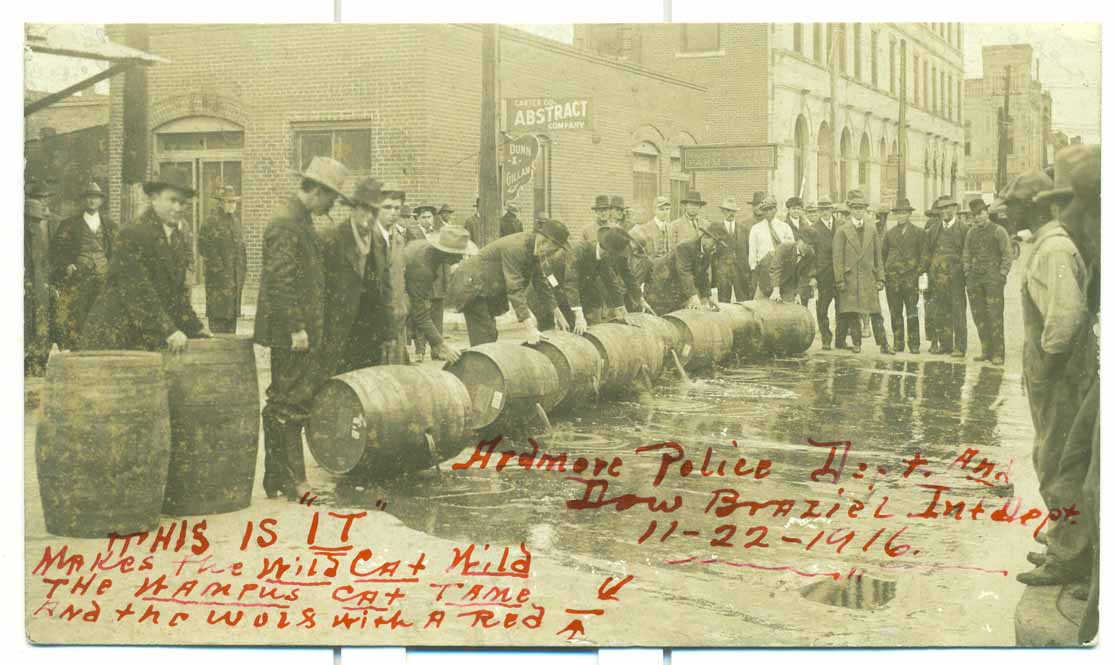 CARTER CO.
ABSTRACT
COMPANY
DUNN
-&-
GILLAM
Ardmore Police Dept. And
Dow Braziel Int Dept.
11-22-1916.
THIS IS "IT"
Makes the Wild Cat Wild
THE WAMPUS CAT TAME
And the Wols with A Red